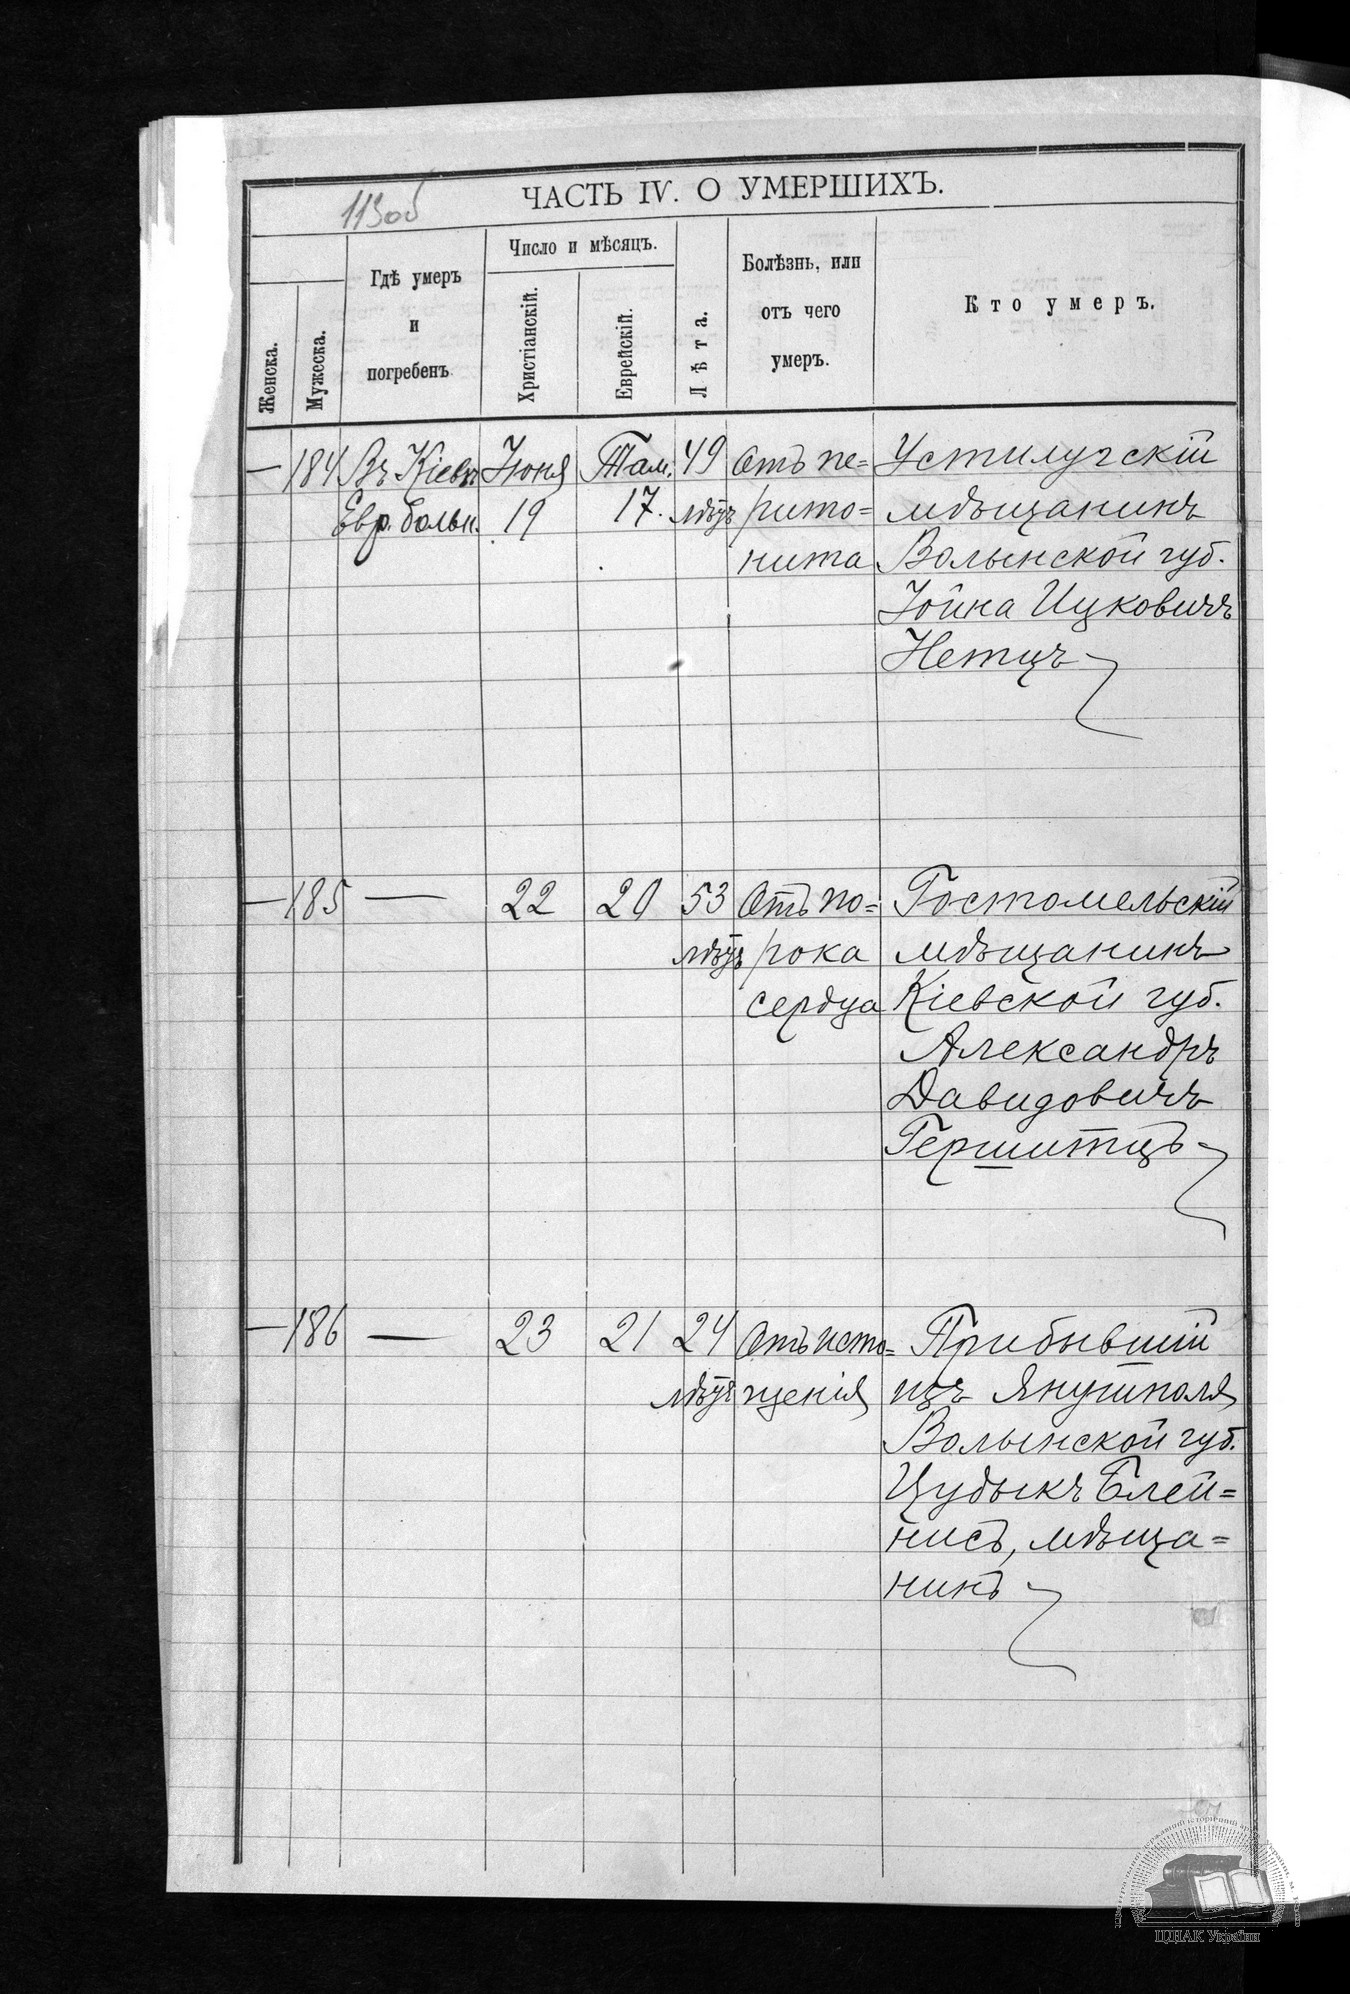 113об
ЧАСТЬ IV. О УМЕРШИХЪ.
Женска.
Мужеска.
Гдѣ умеръ
и
погребенъ
Число и мѣсяцъ.
Христіанскій.
Еврейскій.
Лѣта.
Болѣзнь, или
отъ чего
умеръ.
Кто умеръ.
— 184 Въ Кіевѣ Іюня Там. 49 Отъ пе= Устилугскій
Евр. больн. 19 17. лѣтъ рито= мѣщанинъ
нита Волынской губ.
Іойна Ицковичъ
Нетцъ
— 185 — 22 20 53 Отъ по= Гостомельскій
лѣтъ рока мѣщанинъ
сердца Кіевской губ.
Александръ
Давидовичъ
Гершитцъ
— 186 — 23 21 24 Отъ исто= Прибывшій
лѣтъ щенія изъ Янушполя
Волынской губ.
Цудыкъ Блей=
нисъ, мѣща=
нинъ
ЦДІАК України